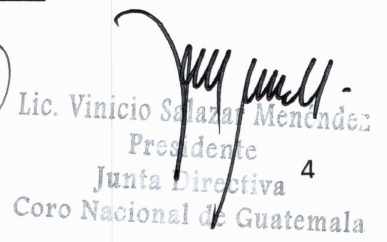 Lic. Vinicio Salazar Menéndez
Presidente
Junta Directiva
4
Coro Nacional de Guatemala